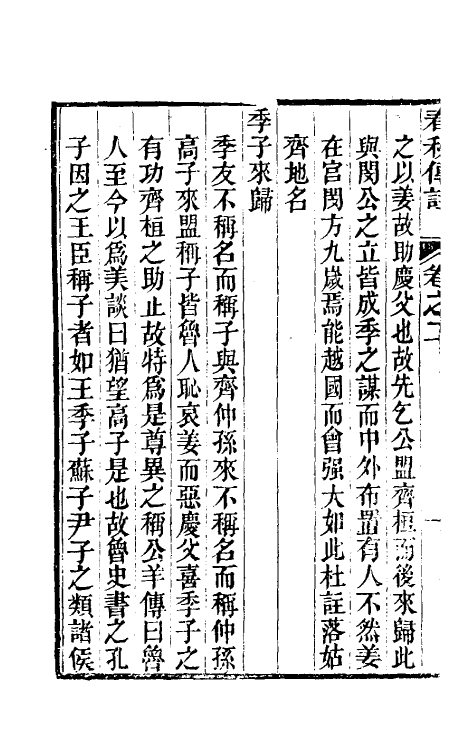 春秋傳註 卷之二 一
之以姜故助慶父也故先乞公盟齊桓而後來歸此
與閔公之立皆成季之謀而中外布置有人不然姜
在宮閔方九歲焉能越國而會强大如此杜註落姑
齊地名
季子來歸
季友不稱名而稱子與齊仲孫來不稱名而稱仲孫
高子來盟稱子皆魯人恥哀姜而惡慶父喜季子之
有功齊桓之助止故特爲是尊異之稱公羊傳曰魯
人至今以爲美談曰猶望高子是也故魯史書之孔
子因之王臣稱子者如王季子蘇子尹子之類諸侯